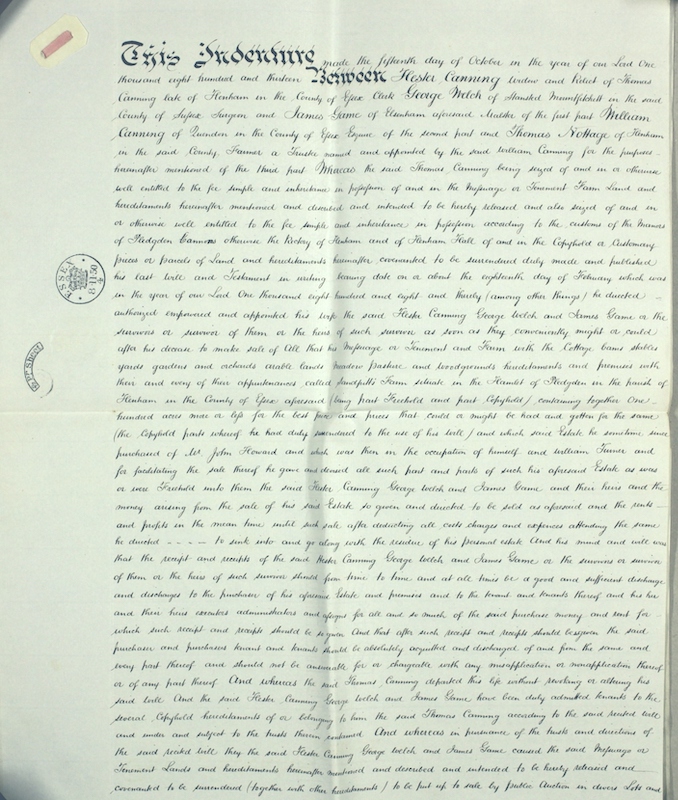 This Indenture made the fifteenth day of October in the year of our Lord One
thousand eight hundred and thirteen Between Hester Canning widow and Relict of Thomas
Canning late of Henham in the County of Essex Clerk George Welch of Stansted Mountfitchett in the said
County of Surgeon and James Game of Elsenham aforesaid of the first part William
Canning of Quendon in the County of Essex Esquire of the second part and Thomas Nottage of Henham
in the said County Farmer a Trustee named and appointed by the said William Canning for the purposes
hereinafter mentioned of the third part Whereas the said Thomas Canning being seized of and in or otherwise
well entitled to the fee simple and inheritance in possession of and in the Messuage or Tenement Farm Land and
hereditaments hereinafter mentioned and described and intended to be hereby released and also seized of and in
or otherwise well entitled to the fee simple and inheritance in possession according to the customs of the Manors
of Pledgdon Cannons otherwise the Rectory of Henham and of Henham Hall of and in the Copyhold or Customary
pieces or parcels of Land and hereditaments hereinafter covenanted to be surrendered duly made and published
his last will and Testament in writing bearing date on or about the eighteenth day of February which was
in the year of our Lord One thousand eight hundred and eight and thereby (among other things) he directed
authorized empowered and appointed his wife the said Hester Canning George Welch and James Game or the
survivors or survivor of them or the heirs of such survivor as soon as they conveniently might or could
after his decease to make sale of All that his Messuage or Tenement and Farm with the Cottage barns stables
yards gardens and orchards arable lands meadow pasture and woodgrounds hereditaments and premises with
their and every of their appurtenances called Sandpitts Farm situate in the Hamlet of Pledgdon in the parish of
Henham in the County of Essex aforesaid (being part Freehold and part Copyhold) containing together One
hundred acres more or less for the best price and prices that could or might be had and gotten for the same
(the Copyhold parts whereof he had duly surrendered to the use of his will) and which said Estate he sometime since
purchased of Mr. John Howard and which was then in the occupation of himself and William Turner and
for facilitating the sale thereof he gave and devised all such part and parts of such his aforesaid Estate as was
or were Freehold unto them the said Hester Canning George Welch and James Game and their heirs and the
money arising from the sale of his said Estate so given and directed to be sold as aforesaid and the rents
and profits in the mean time until such sale after deducting all costs charges and expences attending the same
he directed - - - - - to sink into and go along with the residue of his personal estate And his mind and will was
that the receipt and receipts of the said Hester Canning George Welch and James Game or the survivors or survivor
of them or the heirs of such survivor should from time to time and at all times be a good and sufficient discharge
and discharges to the purchaser of his aforesaid Estate and premises and to the tenant and tenants thereof and his her
and their heirs executors administrators and assigns for all and so much of the said purchase money and rent for
which such receipt and receipts should be so given And that after such receipt and receipts should be given the said
purchaser and purchasers tenant and tenants should be absolutely acquitted and discharged of and from the same and
every part thereof and should not be answerable for or chargeable with any misapplication or nonapplication thereof
or of any part thereof And whereas the said Thomas Canning departed this life without revoking or altering his
said will And the said Hester Canning George Welch and James Game have been duly admitted tenants to the
several Copyhold hereditaments of or belonging to him the said Thomas Canning according to the said recited will
and under and subject to the trusts therein contained And whereas in pursuance of the trusts and directions of
the said recited will they the said Hester Canning George Welch and James Game caused the said Messuage or
Tenement Lands and hereditaments hereinafter mentioned and described and intended to be hereby released and
covenanted to be surrendered (together with other hereditaments) to be put up to sale by public Auction in divers Lots and
ESSEX
8·11·50
4
Sheet